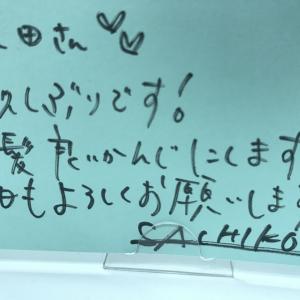 田さん
久しぶりです!
髪良いかんじにします
もよろしくお願いしま
SACHIKO